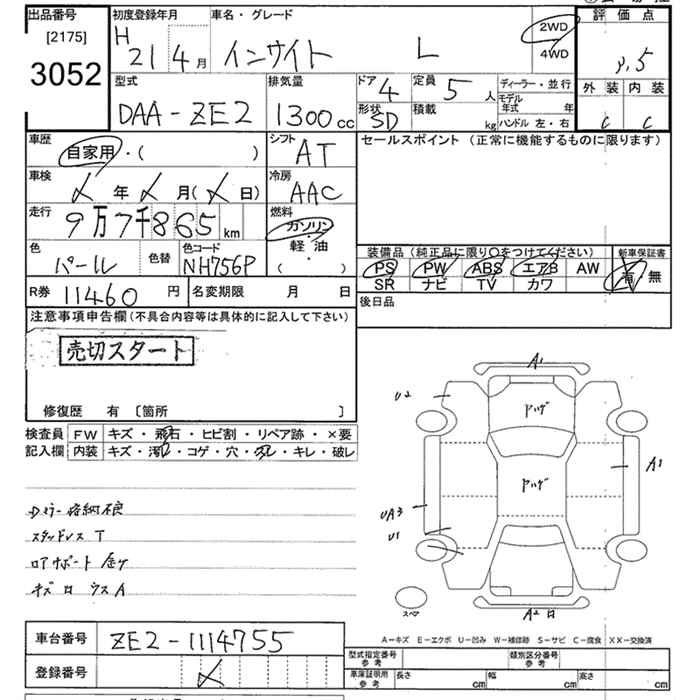 出品番号 初度登録年月 車名・グレード 評価点
[2175] H 21年 4月 インサイト L 2WD 4WD
3052 型式 排気量 ドア 4 定員 5人 ディーラー・並行
DAA-ZE2 1300cc 形状 SD 積載 kg モデル年式 年 ハンドル 左・右 外装 内装 C C
車歴 自家用・( ) シフト AT セールスポイント (正常に機能するものに限ります)
車検 年 月( 日) 冷房 AAC
走行 9万7千865km 燃料 ガソリン・軽油・( )
色 パール 色替 色コード NH756P 装備品 (純正品に限り○をつけてください) 新車保証書
PS PW ABS エアB AW 有・無
SR ナビ TV カワ
R券 11460円 名変期限 月 日 後日品
注意事項申告欄(不具合内容等は具体的に記入して下さい)
売切スタート
修復歴 有 〔箇所 〕
検査員 FW キズ・飛石・ヒビ割・リペア跡・×要
記入欄 内装 キズ・コゲ・穴・キレ・破レ
Dミラー格納不良
スタッドレス T
ロアサポート
A1
U2
アハゲ
アハゲ
A1
UA3
U1
スペア
A2
A-キズ E-エクボ U-凹み W-補修跡 S-サビ C-腐食 XX-交換済
車台番号 ZE2-1114755
登録番号
型式指定番号 参考 類別区分番号 参考
車庫証明用 参考 長さ cm 幅 cm 高さ cm